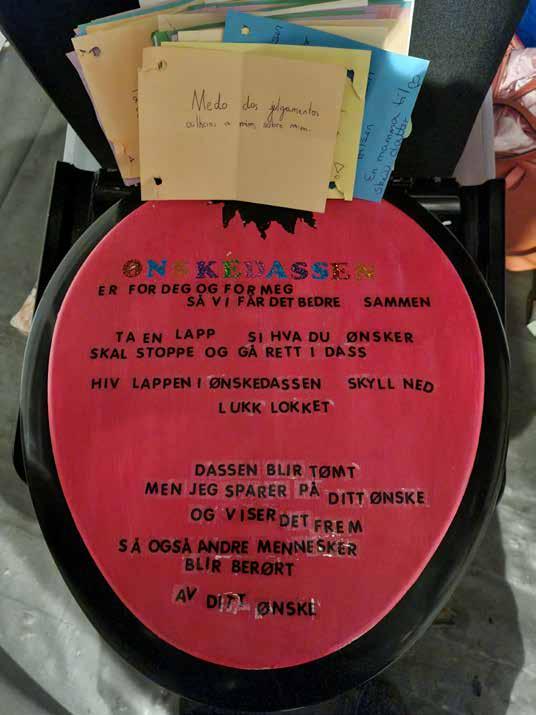 Medo dos julgamentos
alheios a mim, sobre mim.
En mamma til 3
skjønne døtre
ØNSKEDASSEN
ER FOR DEG OG FOR MEG
SÅ VI FÅR DET BEDRE SAMMEN
TA EN LAPP SI HVA DU ØNSKER
SKAL STOPPE OG GÅ RETT I DASS
HIV LAPPEN I ØNSKEDASSEN SKYLL NED
LUKK LOKKET
DASSEN BLIR TØMT
MEN JEG SPARER PÅ DITT ØNSKE
OG VISER DET FREM
SÅ OGSÅ ANDRE MENNESKER
BLIR BERØRT
AV DITT ØNSKE